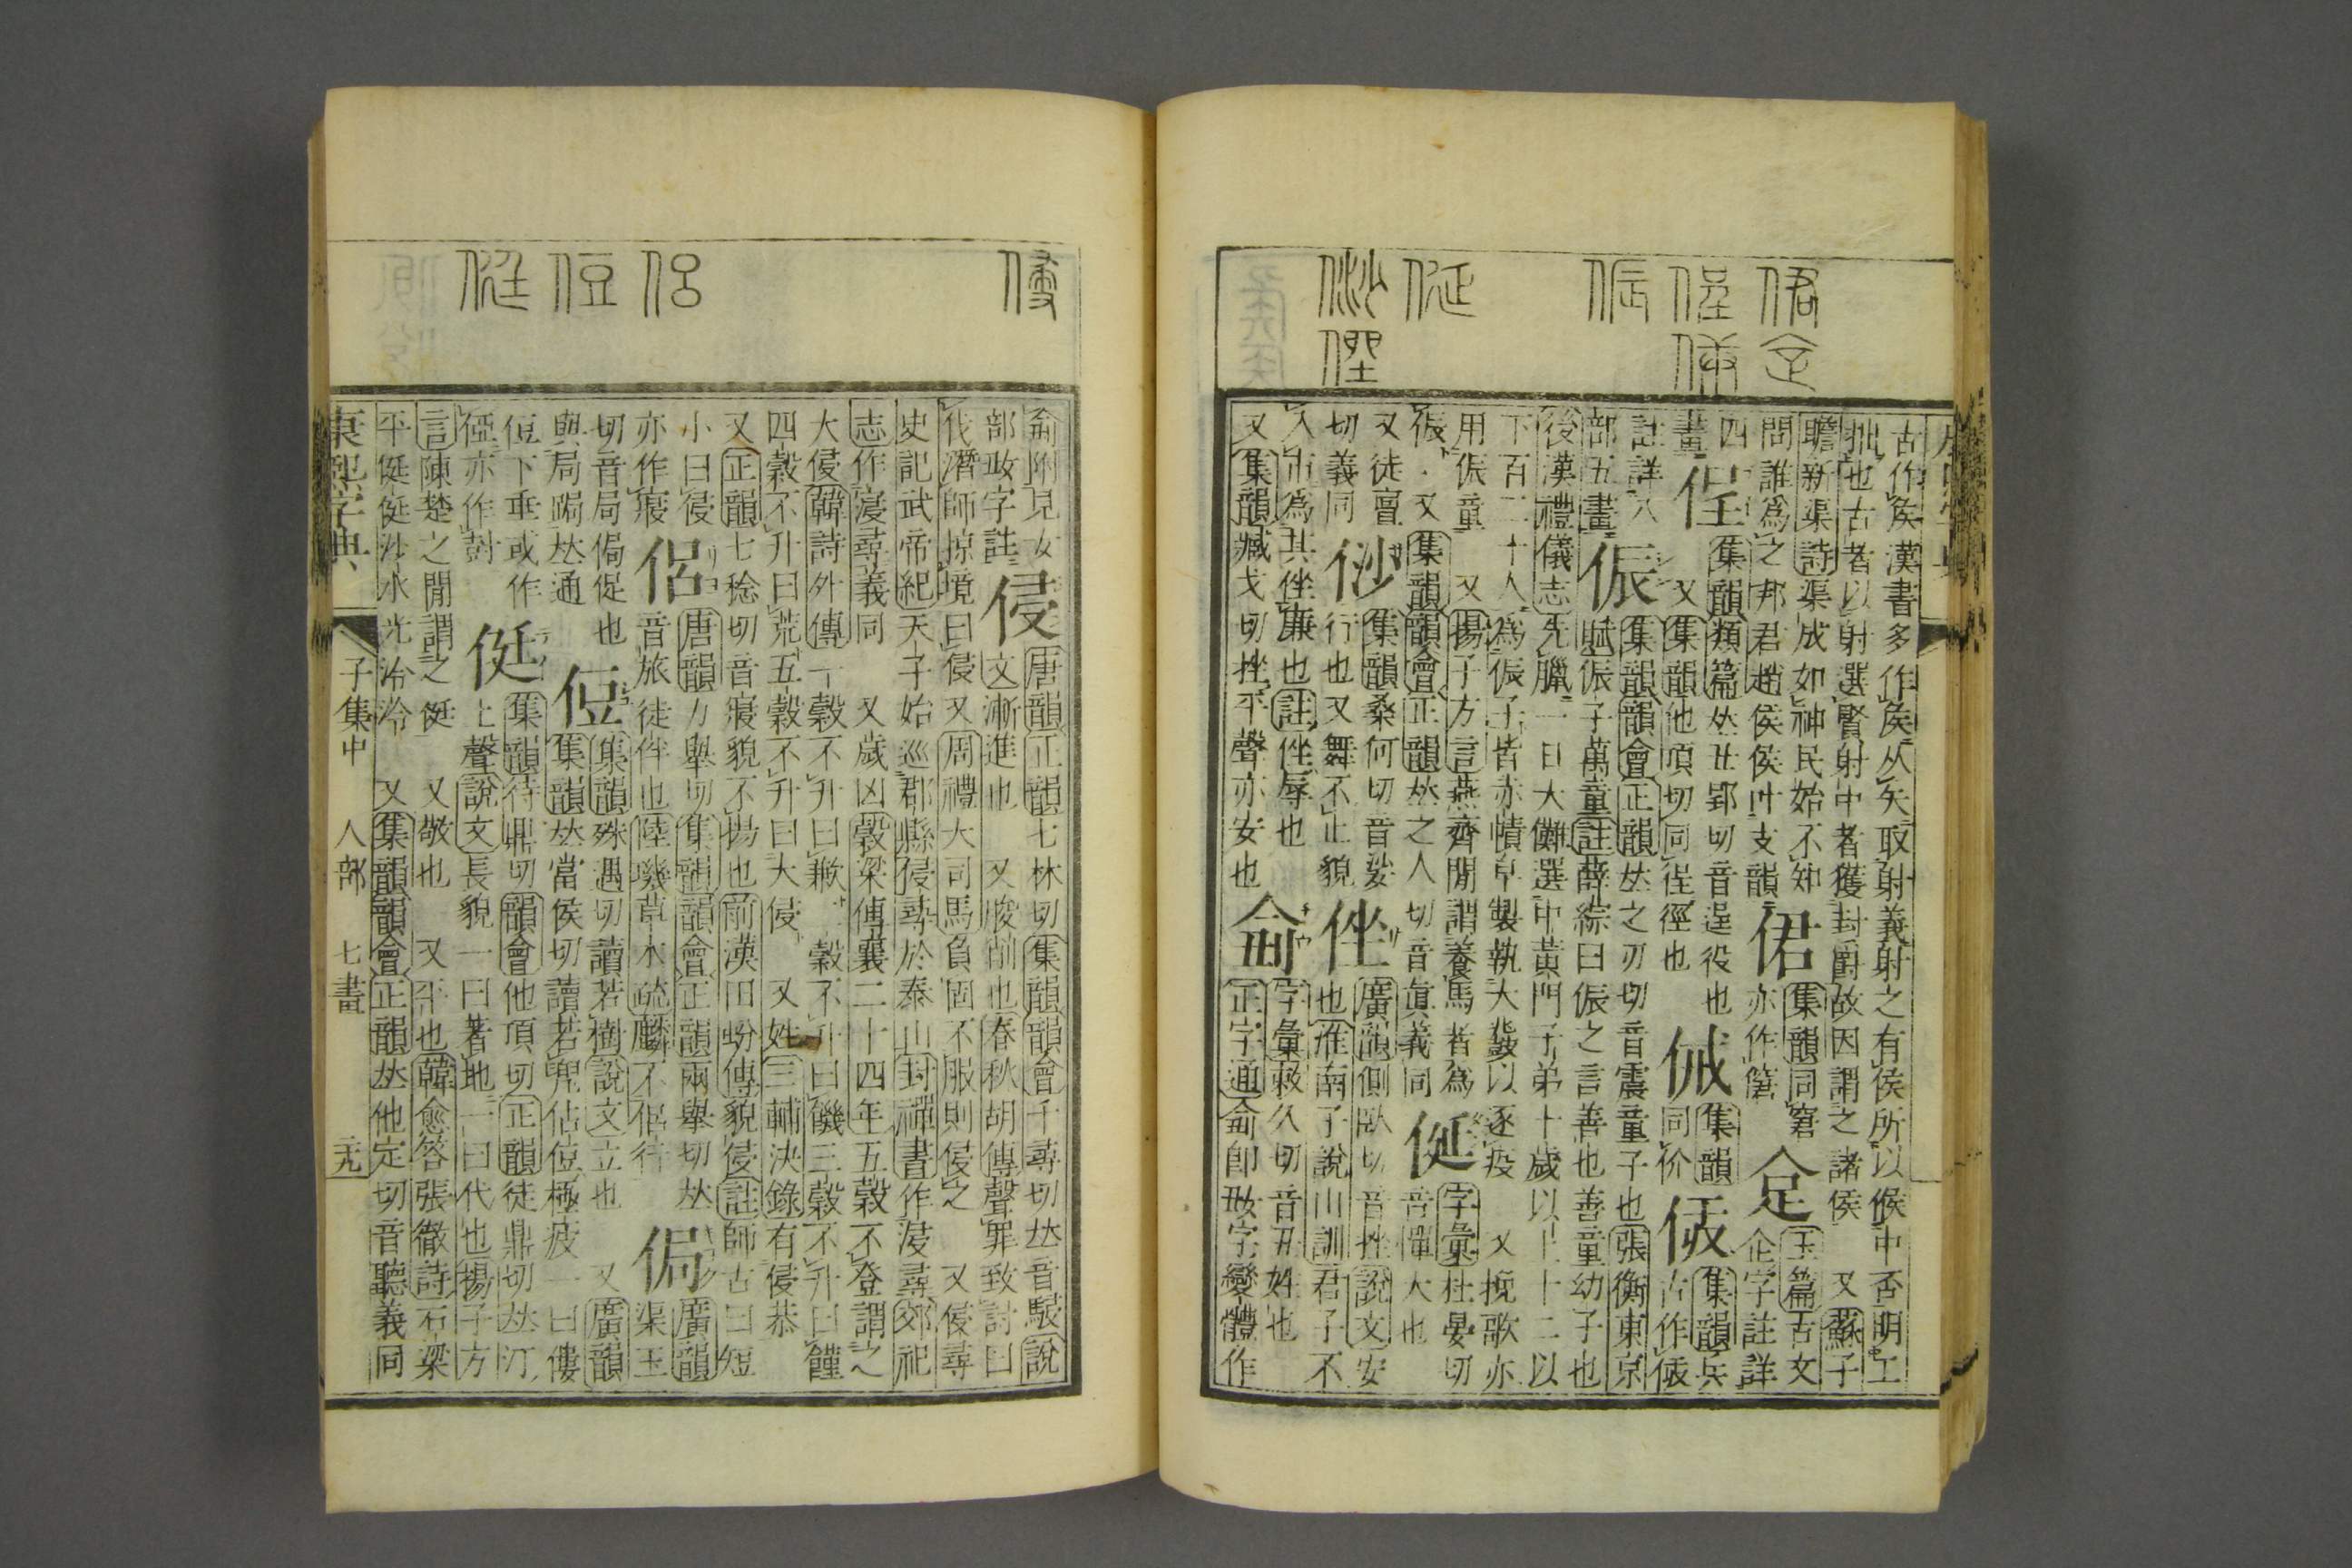 古作矦漢書多作矦从矢取射義射之有侯所以候中否明工
拙也古者以射選賢射中者獲封爵故因謂之諸侯 又蘇子
瞻新渠詩渠成如神民始不知 侰 集韻同窘 玉篇古文
問誰爲之邦君趙侯侯叶支韻 亦作 企字註詳
四 侱 集韻類篇𠀤丑郢切音逞役也 集韻 集韻兵
畫 又集韻他頂切同徎徑也 同 古作
註詳八 侲 集韻韻會正韻𠀤之刃切音震童子也張衡東京
部五畫 賦侲子萬童註薛綜曰侲之言善也善童幼子也
後漢禮儀志先臘一日大儺選中黃門子弟十歲以上十二以
下百二十人爲侲子皆赤幘皁製執大鼗以逐疫 又挽歌亦
用侲童 又揚子方言燕齊閒謂養馬者爲 侹 字彙杜晏切
侲 又集韻韻會正韻𠀤之人切音眞義同 音憚大也
又徒亶 㑚 集韻桑何切音娑 侳 廣韻側臥切音挫說文安
切義同 行也又舞不止貌 也淮南子說山訓君子不
入市爲其侳廉也註侳辱也 字彙敕久切音丑姓也
又集韻臧戈切挫平聲亦安也 正字通 卽 字變體作
附見女 唐韻正韻七林切集韻韻會千尋切𠀤音駸說
部 字註 侵 文漸進也 又朘削也春秋胡傳聲罪致討曰
伐潛師掠境曰侵又周禮大司馬負固不服則侵之 又侵尋
史記武帝紀天子始巡郡縣侵尋於泰山封禪書作浸尋郊祀
志作寖尋義同 又歲凶穀梁傳襄二十四年五穀不登謂之
大侵韓詩外傳一穀不升曰歉二穀不升曰饑三穀不升曰饉
四穀不升曰荒五穀不升曰大侵 又姓三輔決錄有侵恭
又正韻七稔切音寢貌不揚也前漢田蚡傳貌侵註師古曰短
小曰侵 侶 唐韻力舉切集韻韻會正韻兩舉切𠀤 侷 廣韻
亦作寢 音旅徒伴也陸璣草木疏麟不侶行 渠玉
切音局侷促也 侸 集韻殊遇切讀若樹說文立也 又廣韻
與局跼𠀤通 集韻𠀤當侯切讀若兜佔侸極疲一曰僂
侸下垂或作 侹 集韻待鼎切韻會他頂切正韻徒鼎切𠀤汀
亦作尌 上聲說文長貌一曰著地一曰代也揚子方
言陳楚之閒謂之侹 又敬也 又平也韓愈答張徹詩石梁
平侹侹沙水光泠泠 又集韻韻會正韻𠀤他定切音聽義同
康熙字典 子集中 人部 七畫 二十九